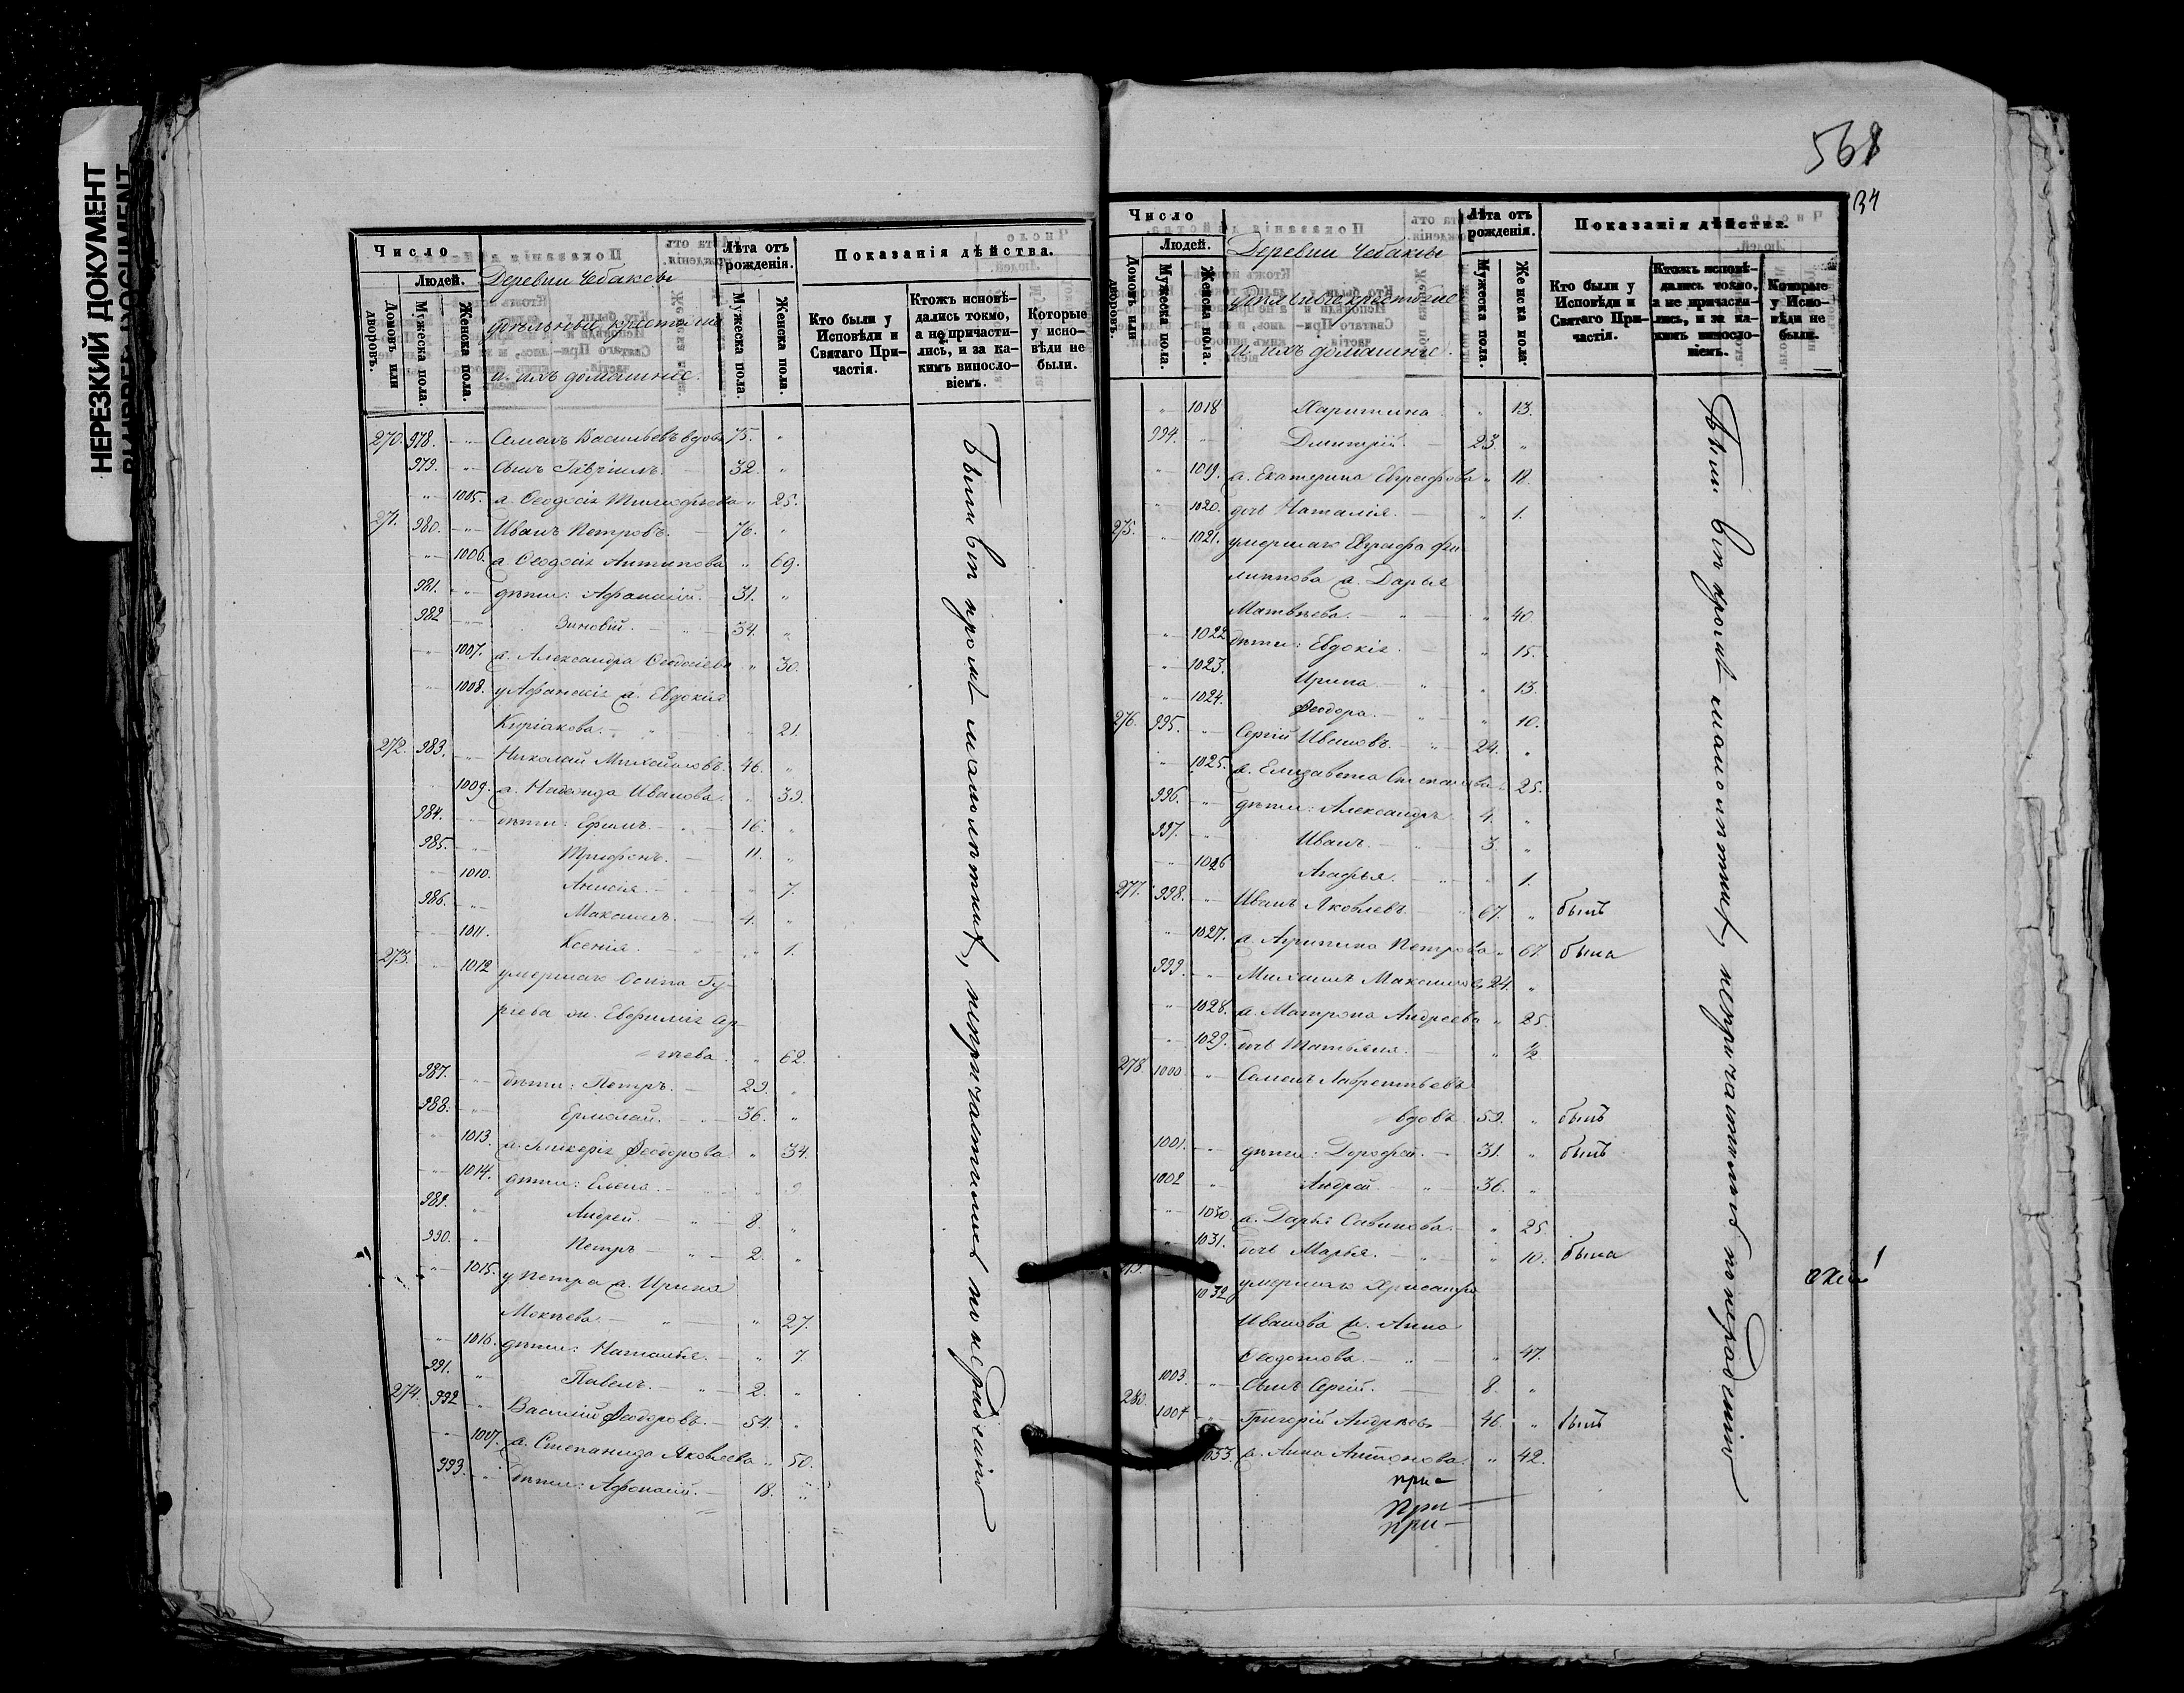 НЕРЕЗКИЙ ДОКУМЕНТ
561
Число
Людей.
Домовъ или дворовъ.
Мужеска пола.
Женска пола.
Деревни Чебаксы
удѣльные крестьяне
и ихъ домашніе.
Лѣта отъ рожденія.
Мужеска пола.
Женска пола
Показанія дѣйства.
Кто были у Исповѣди и Святаго Причастія.
Ктожъ исповѣдались токмо, а не причастились, и за какимъ винословіемъ.
Которые у исповѣди не были.
270. 978. Семенъ Васильевъ вдовъ 75.
979. Сынъ Гавріилъ. 32.
1005. ж. Ѳеодосія Тимоѳѣева 25.
271. 980. Иванъ Петровъ. 76.
1006. ж. Ѳеодосія Антипова 69.
981. дѣти: Афанасій. 31.
982 Зиновій. 34.
1007. ж. Александра Ѳеодосіева 30.
1008. у Афанасія ж. Евдокія
Киріакова. 21.
272. 983. Николай Михайловъ. 46.
1009. ж. Надежда Иванова. 39.
984. дѣти: Ефимъ. 16.
985. Трифонъ. 11.
1010. Анисія. 7.
986. Максимъ. 4.
1011. Ксенія. 1.
273. 1012 умершаго Осипа Гу-
рьева ж. Евфимія
62.
987. дѣти: Петръ. 29.
988. Ермолай. 36.
1013. ж. Гликерія Ѳеодорова. 34.
1014. дѣти: Елена. 9
989. Андрей. 8.
990. Петръ 2.
1015. у Петра ж. Ирина
Мокѣева. 27.
1016. дѣти: Наталья. 7.
991. Павелъ. 2.
274. 992 Василій Ѳеодоровъ. 54.
1017. ж. Степанида Яковлева 50.
993. дѣти: Афанасій. 18.
Были вси кромѣ малолѣтнихъ, непричастились по нерадѣнію
Число
Людей.
Домовъ или дворовъ.
Мужеска пола.
Женска пола.
Деревни Чебаксы
удѣльные крестьяне
и ихъ домашніе.
Лѣта отъ рожденія.
Мужеска пола.
Женска пола.
Показанія дѣйства.
Кто были у Исповѣди и Святаго Причастія.
Ктожъ исповѣдались токмо, а не причастились, и за какимъ винословіемъ.
Которые у Исповѣди не были.
1018 Харитина 13.
994. Дмитрій. 23.
1019. ж. Екатерина Евграфова 18.
1020. дочь Наталія. 1.
275. 1021. умершаго Евграфа Фи-
липпова ж. Дарья
Матвѣева. 40.
1022 дѣти: Евдокія. 15.
1023. Ирина 13.
1024. Ѳеодора. 10.
276. 995. Сергій Ивановъ. 24.
1025. ж. Елизавета Степанова 25.
996. дѣти: Александръ 4.
997. Иванъ. 3.
1026 Агафья. 1.
277. 998. Иванъ Яковлевъ. 67. былъ
1027. ж. Агрипина Петрова 67. была
999. Михаилъ Максимовъ 24.
1028. ж. Матрона Андреева 25.
1029. дочь Татьяна. ½
278. 1000 Семенъ Лаврентьевъ
вдовъ 59. былъ
1001. дѣти: Дорофей. 31. былъ
1002 Андрей 36.
1030. ж. Дарья Савинова. 25.
1031. дочь Марья. 10. была
1032 умершаго Хрисанфа
Иванова ж. Анна
Ѳеодотова. 47.
1003. Сынъ Сергій. 8.
280. 1004 Григорій Андреевъ 46. былъ
1033. ж. Анна Антонова. 42.
при-
При-
при-
Были вси кромѣ малолѣтнихъ, непричастились по нерадѣнію